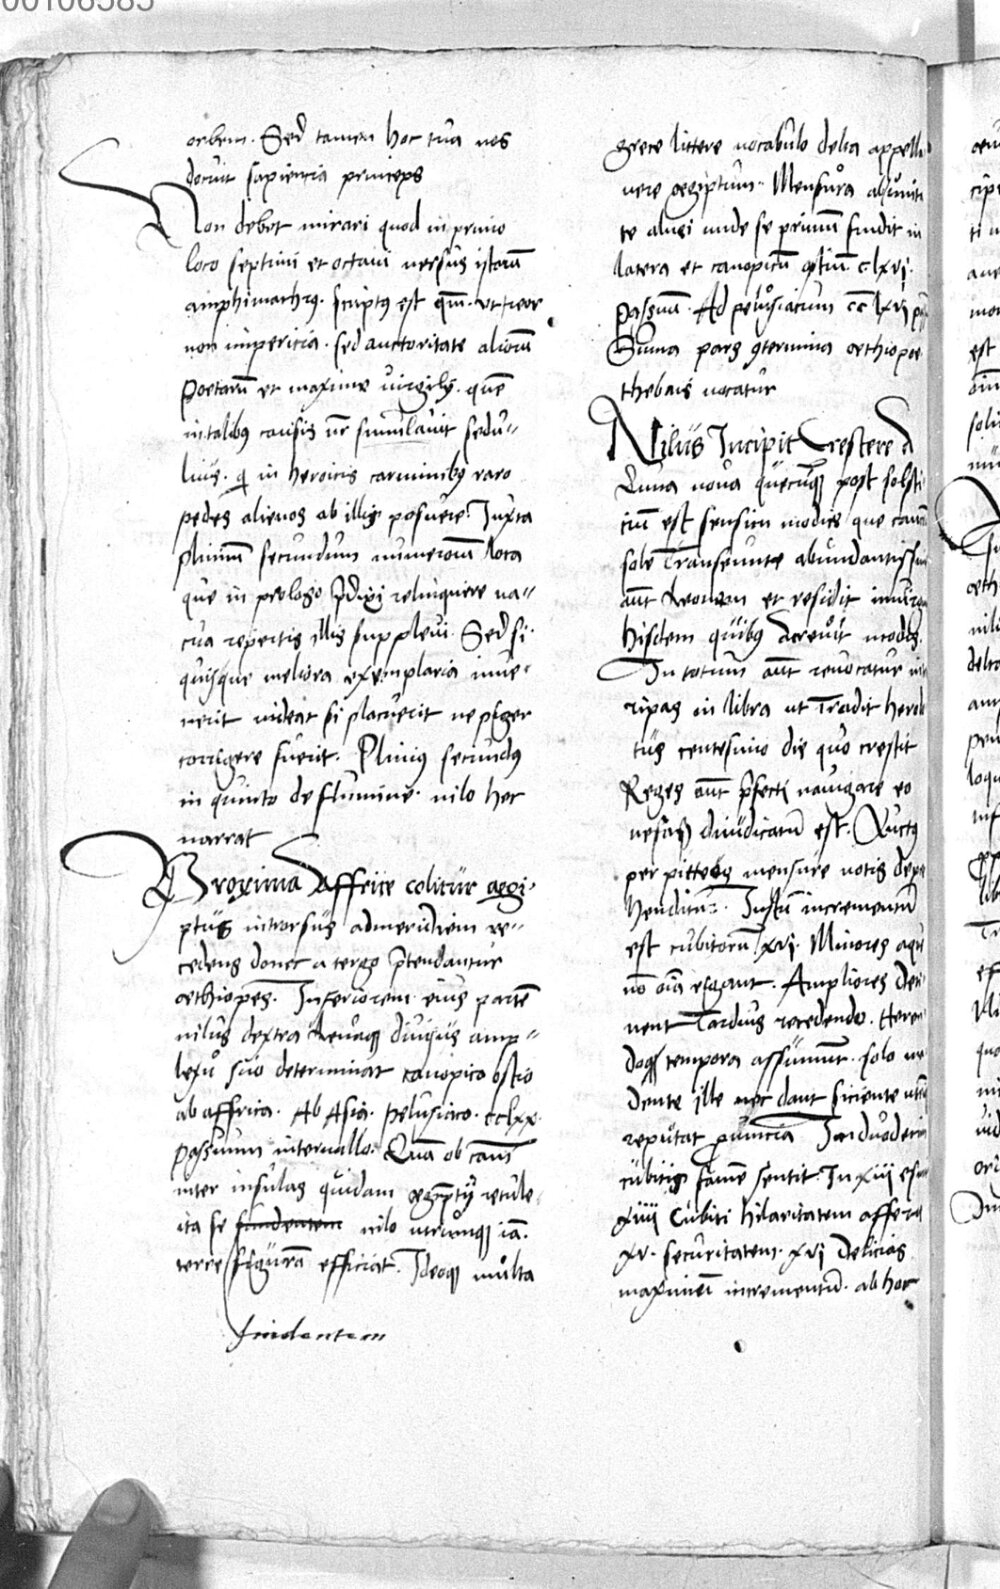 00106585
orbem. Sed tamen hoc tua nos
docuit sapiencia princeps
Non debet mirari quod in primo
loco septimi et octaui uersus istorū
amphimachrꝰ. scriptꝰ est qm̄. ut reor
non impericia. sed auctoritate aliorū
poetarū et maxime uirgilij. quē
in talibꝰ causis nr̄ simulauit sedu-
lius. qi in heroicis carminibꝰ raro
pedes alienos ab illis posuere. Juxta
plinium secundum numerorum loca
que in prologo p̄dixi relinquere ua-
cua repertis illis suppleui. Sed si
quisque meliora exemplaria inue-
nerit uideat si placuerit ne piger
corrigere fuerit. Pliniꝰ secundꝰ
in quinto de flumine nilo hec
narrat
Proxima Affrice colitur aegi-
ptus introrsus ad meridiem re-
cedens donec a tergo p̄tendantur
aethiopes. Inferiorem eius partē
nilus dextra leuaqꝫ diuisus amp-
lexu suo determinat canopico ostio
ab affrica. Ab Asia. pelusiaco. cclxx.
passuum interuallo. Quā ob cam̄
inter insulas quidam aegyptū retule
ita se fundentem nilo utrumqꝫ iā.
terre figurā efficiat. Ideoqꝫ multa
findentem
grece littere uocabulo delta appella
uere aegiptum. Mensura ab unita
te aluei unde se primū fundit in
latera et canopicū ostiū clxvi.
passuū. Ad pelusiacum cclxvi
Suma pars 9termina aethiopae
thebais uocatur
Nilus Incipit Crescere a
Luna noua quecūqꝫ post solsti
ciū est sensim modice que cancrū
sole Transeunte abundantissim
aūt Leonem et residit in uirg
hisdem quibꝰ Acreuit modis.
In totum aūt reuocatur in
ripas in libra ut Tradit herod
tus centesimo die quo crescit
Reges aūt p̄fecti nauigare eo
nefas diiudicatū est. Auctꝰ
per puteos mensure notis depe
henditur. Justū incrementū
est cubitorū xvi. Minores aque
nō oīa rigant. Ampliores deti
nent Tardius recedendo. Heren
doqꝫ tempora assumunt. solo ma
dente ille nec dant siciente utrū
reputat prouincia In duodecim
cubitis famē sentit. In xiii esu
xiiii cubiti hilaritatem affer
xv. securitatem. xvi delicias
maximū incrementū. ab hoc